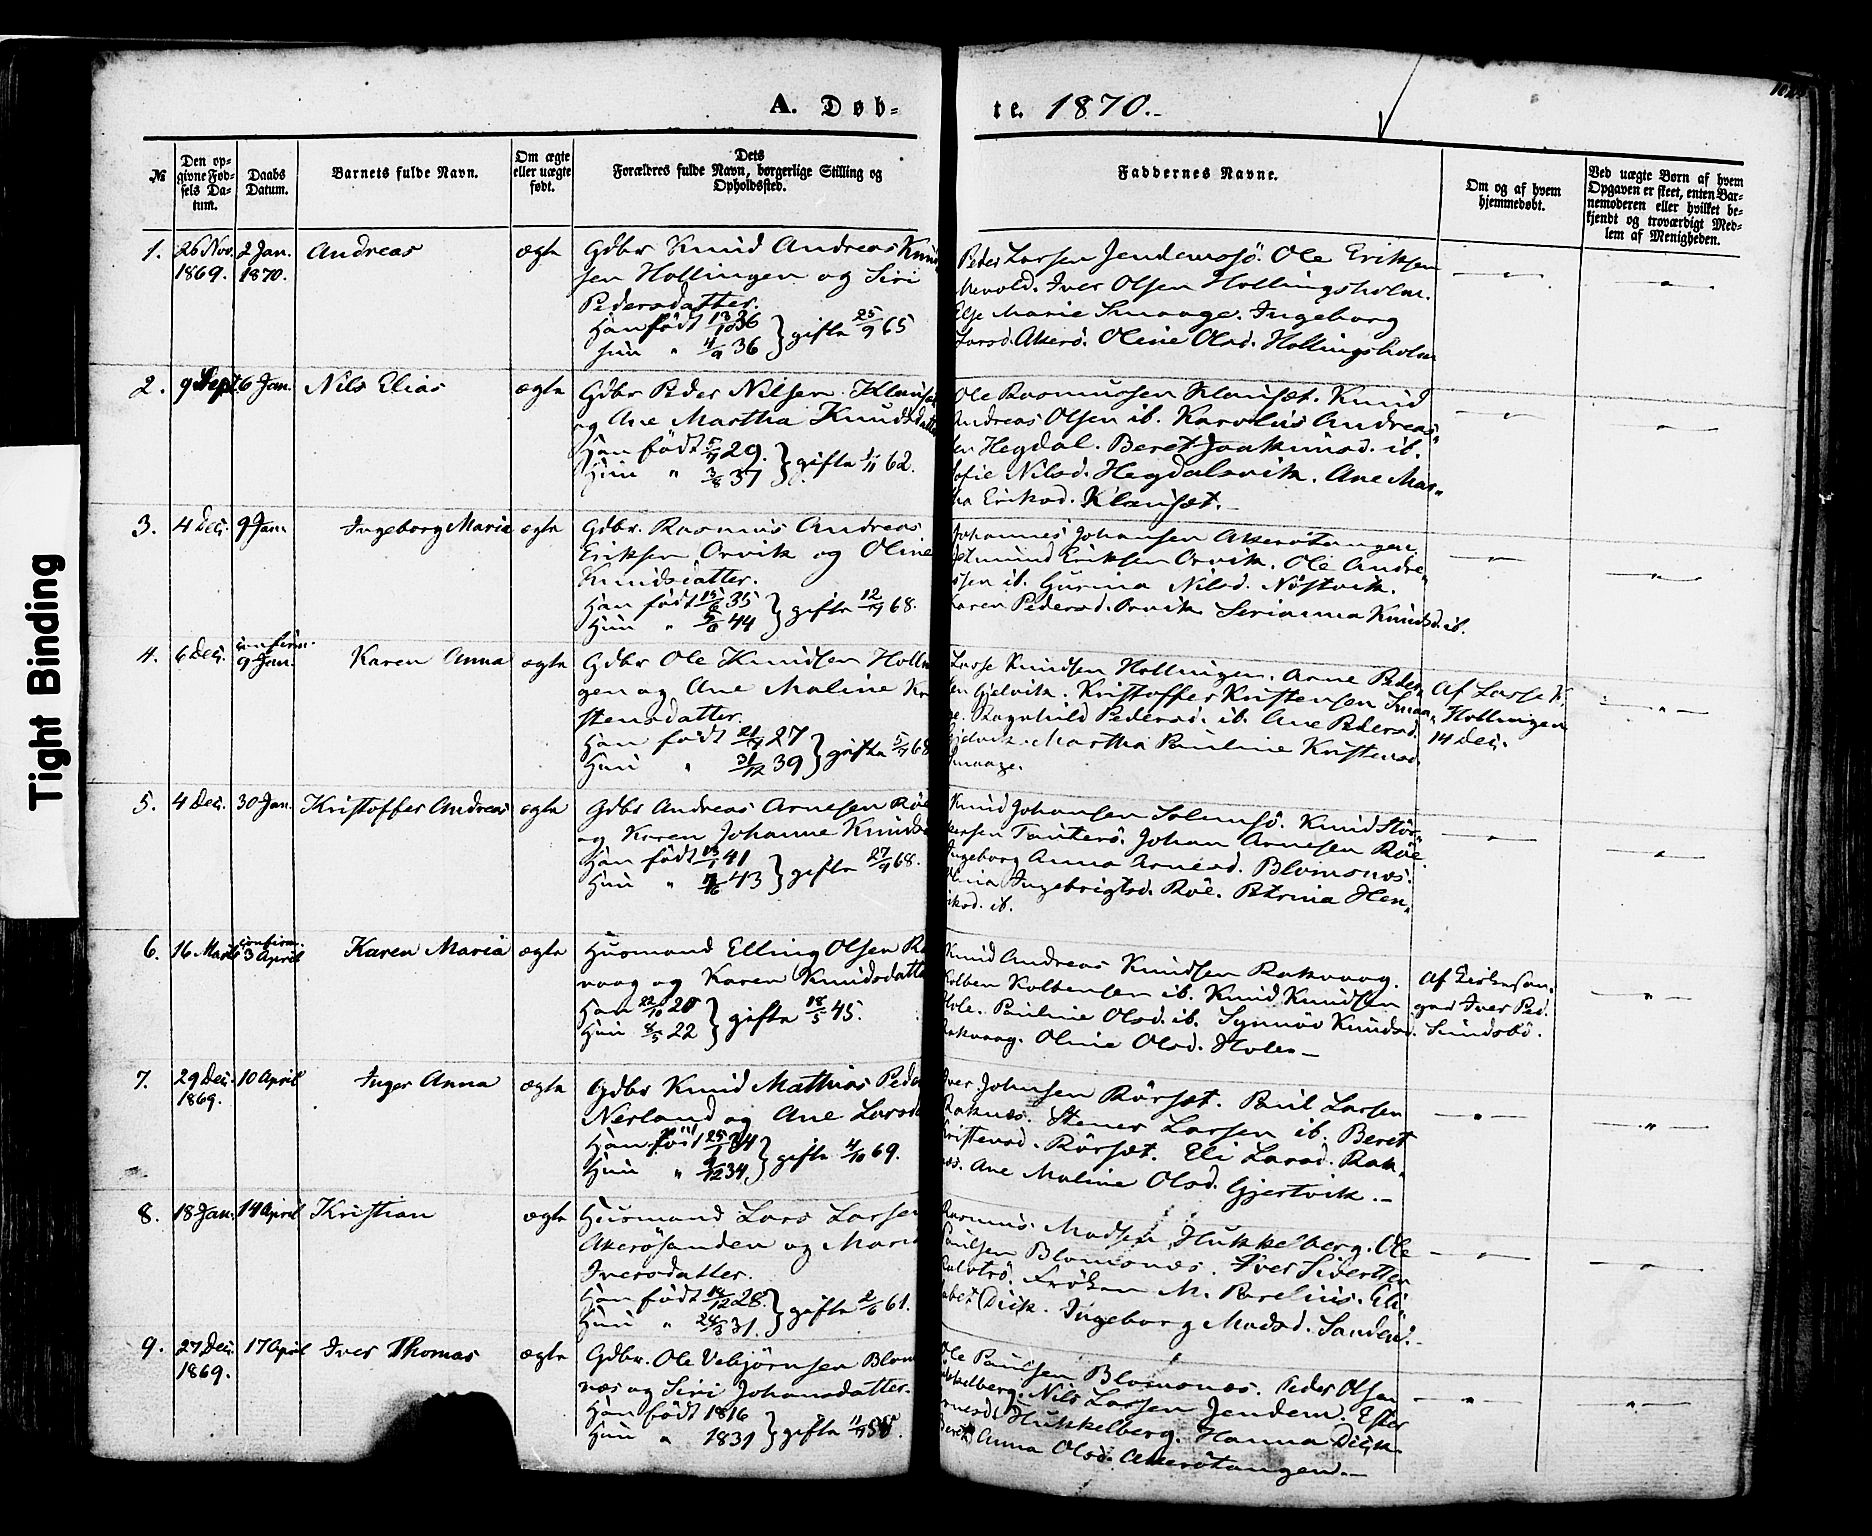 Tight Binding
A. Døb-
te. 1870.-
№
Den op-
givne Fød-
sels Da-
tum.
Daabs
Datum.
Barnets fulde Navn.
Om ægte
eller uægte
født.
Dets
Forældres fulde Navn, borgerlige Stilling og
Opholdssted.
Faddernes Navne.
Om og af hvem
hjemmedøbt.
Ved uægte Børn af hvem
Opgaven er skeet, enten Bar-
nemoderen eller hvilket be-
kjendt og troværdigt Med-
lem af Menigheden.
1.
26 Nov.
1869.
2 Jan.
1870.
Andreas
ægte
Gdbr Knud Andreas Knud
sen Hollingen og Siri
Pedersdatter.
Han født 13/10 36
Hun " 4/9 36 } gifte 25/9 65
Peder Larsen Jendemsjö. Ole Eriksen
Mevold. Iver Olsen Hollingsholm.
Else Marie Smaage. Ingeborg
Larsd. Akerö. Oline Olsd. Hollingsholm
2.
9 Sept.
6 Jan.
Nils Elias
ægte
Gdbr Peder Nilsen Klauset
og Ane Martha Knudsdatter
Han født 29.
Hun " 3/8 37 } gifte 1/11 62.
Ole Rasmussen Klauset. Knud
Andreas Olsen ib. Karolus Andreas-
sen Hegdal. Beret Joakimsd. ib.
Sofie Nilsd. Hegdalsvik. Ane Mar-
tha Eriksd. Klauset.
3.
4 Dec.
9 Jan.
Ingeborg Marie
ægte
Gdbr. Rasmus Andreas
Eriksen Orvik og Oline
Knudsdatter.
Han født 15/6 35
Hun " 44 } gifte 12/7 68.
Johannes Johansen Akerötangen.
Edmund Eriksen Orvik. Ole Andre-
sen ib. Gurina Nilsd. Nöstvik.
Karen Pedersd. Orvik. Serianna Knudsd. ib.
4.
6 Dec.
confirm.
9 Jan.
Karen Anna
ægte
Gdbr Ole Knudsen Hollin
gen og Ane Maline Kri
stensdatter.
Han født 27
Hun " 31/12 39 } gifte 5/7 68
Lasse Knudsen Hollingen. Arne Peder-
sen Gjelvik. Kristoffer Kristensen Smaa-
ge. Ragnhild Pedersd. ib. Ane Pedersd.
Gjelvik. Martha Pauline Kristensd.
Smaage.
Af Lasse K.
Hollingen
14 Dec.
5.
4 Dec.
30 Jan.
Kristoffer Andreas
ægte
Gdbr Andreas Arnesen Röe
og Karen Johanne Knudsd
Han født 13/1 41
Hun " 43 } gifte 27/9 68.
Knud Johansen Solemsö. Knud Stör-
kersen Tauterö. Johan Arnesen Röe.
Ingeborg Anna Arnesd. Blomsnes.
Olina Ingebrigtsd. Röe. Petrina Hen-
riksd. ib.
6.
16 Marts
confirm.
3 April
Karen Maria
ægte
Husmand Elling Olsen Ra
vaag og Karen Knudsdatter
Han 22/10 20
Hun 8/5 22 } gifte 18/5 45.
Knud Andreas Knudsen Rakvaag.
Kolben Kolbensen ib. Knud Knudsen
Hole. Pauline Olsd. ib. Synnöv Knudsd.
Rakvaag. Oline Olsd. Holen
Af Kirkesan-
ger Iver Ped.
Sundsbö.
7.
29 Dec.
1869.
10 April
Inger Anna
ægte
Gdbr Knud Mathias Peder
Nerland og Ane Larsd
Han født 25/1 34
Hun " 9/12 34. } gifte 4/10 69.
Iver Johnsen Rörset. Paul Larsen
Raknes. Stener Larsen ib. Beret
Kristensd. Rörset. Eli Larsd. Rak-
nes. Ane Maline Olsd. Gjertvik.
8.
18 Jan.
14 April
Kristian
ægte
Husmand Lars Larsen
Akerösanden og Marit
Iversdatter.
Han født 12 28.
Hun " 24/3 31. } gifte 2/6 61.
Rasmus Madsen Hukkelberg. Ole
Paulsen Blomsnes. Iver Sivertsen
Frøken M. Parelius. Eli-
sabet Dick. Ingeborg Madsd. Sanden.
9.
27 Dec.
1869.
17 April
Iver Thomas
ægte
Gdbr. Ole Vebjörnsen Blom
nes og Siri Johansdatter.
Han født 1816
Hun " 1831 } gifte
Ole Paulsen Blomsnes. Peder Olsen
Hukkelberg. Nils Larsen Jendem. Ester
Arnesd. Hukkelberg. Hanna Dick.
Beret Anna Olsd. Akerötangen.